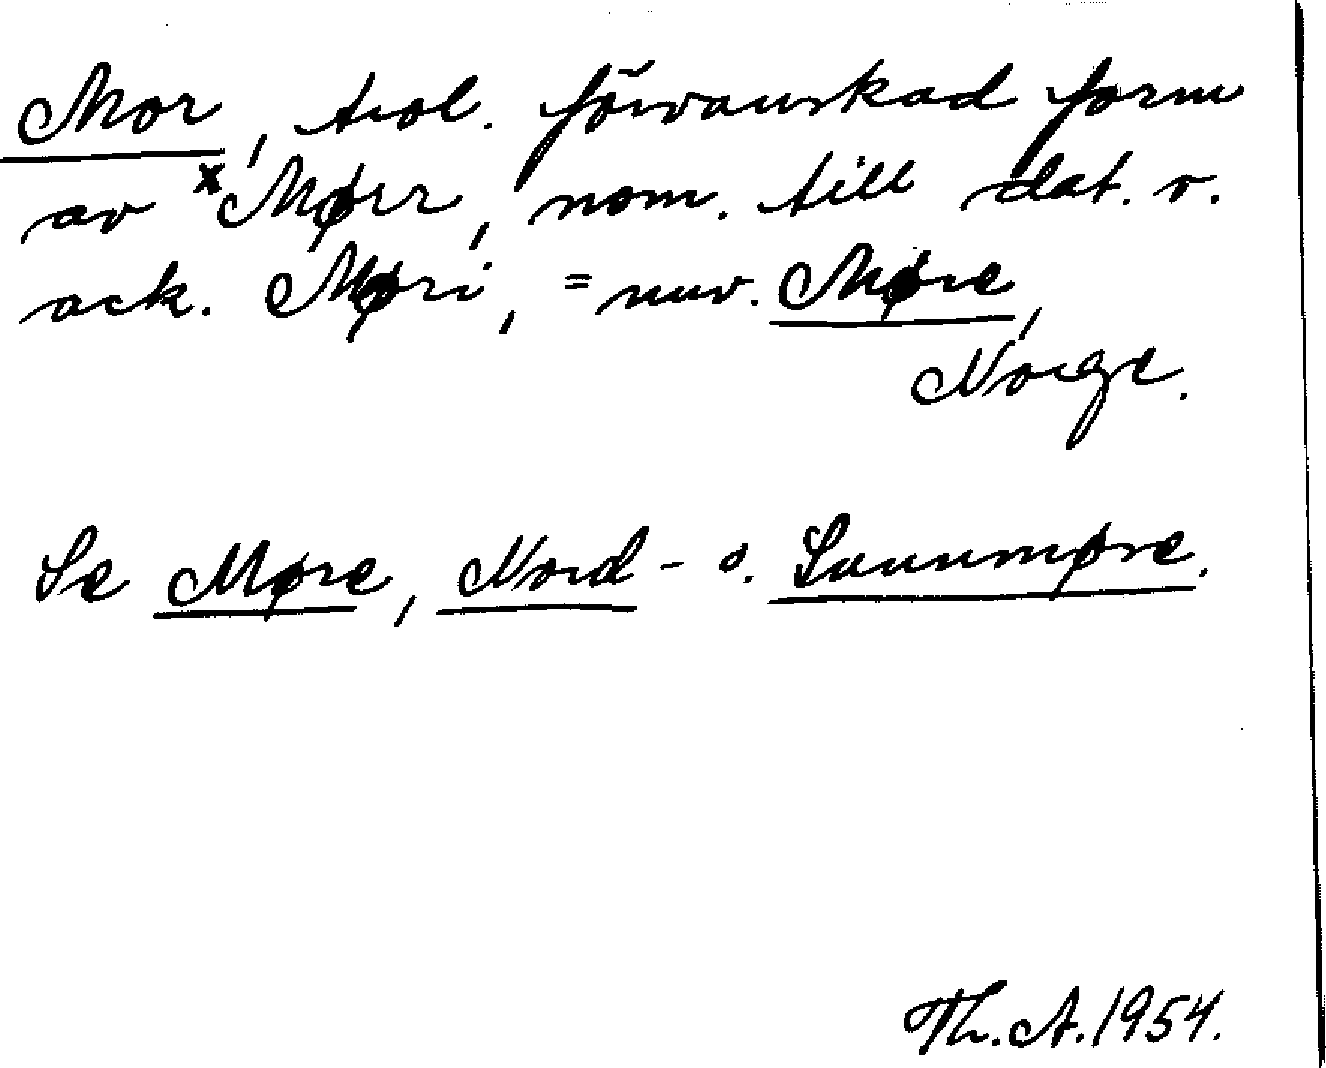 Mor, trol. förvanskad form
av *Mørr, nom. till dat. o.
ack. Møri, = nuv. Møre,
Norge.
Se Møre, Nord- o. Sunnmøre.
Th. A. 1954.